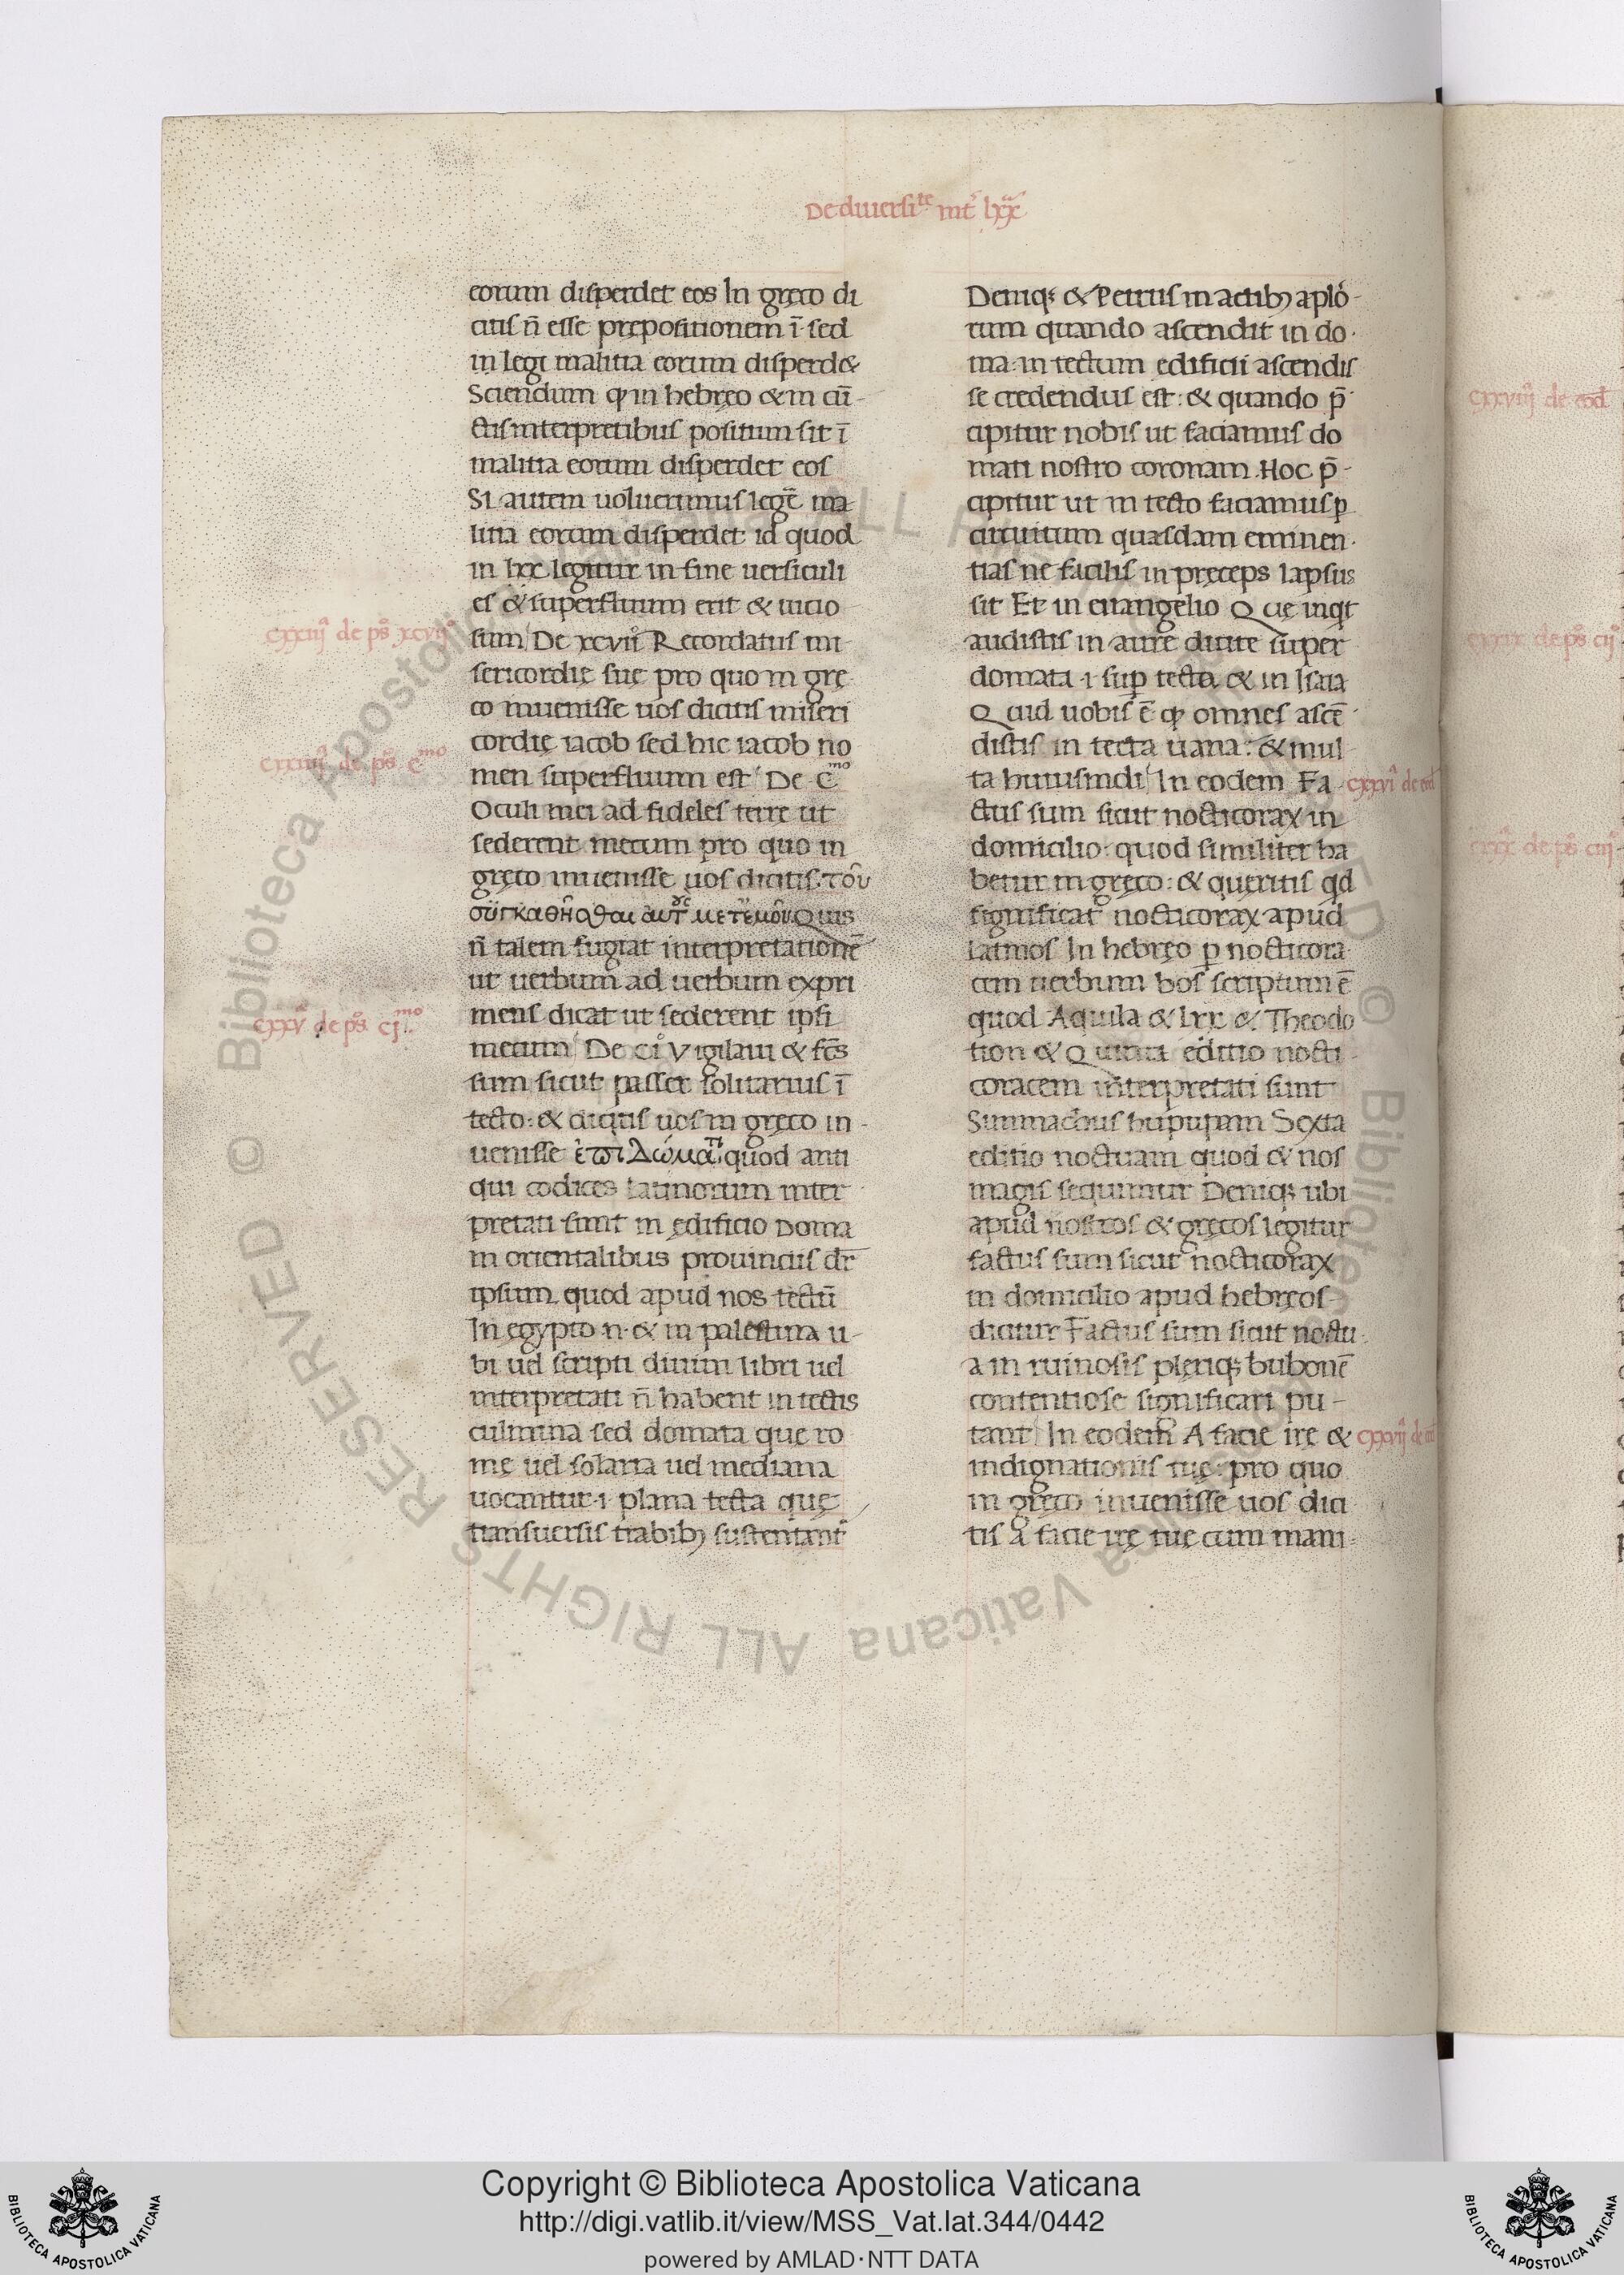 De diuersi^te int̄ lxx^a
eorum disperdet eos In gręco di
citis n̄ esse prępositionem ī sed
in legi malitia eorum disperd&
Sciendum ꝙ in hebręo & in cū-
ctis interpretibus positum sit ī
malitia eorum disperdet eos
Si autem uoluerimus legē̄ ma
litia eorum disperdet id quod
in lxx legitur in fine uersiculi
es & superfluum erit & uicio
sum De xcvii° Recordatus mi
sericordię suę pro quo in grę
co inuenisse uos dicitis miseri
cordię iacob sed hic iacob no
men superfluum est De c^mo
Oculi mei ad fideles terrę ut
sederent mecum pro quo in
gręco inuenisse uos dicitis: τοῦ
συγκαθῆσθαι αυτ^ȣς μετεμοῦ. Quis
n̄ talem fugiat interpretationē
ut uerbum ad uerbum expri
mens dicat ut sederent ipsi
mecum De ci° Vigilaui & fc̄s
sum sicut passer solitarius ī
tecto: & dicitis uos in gręco in-
uenisse ἐπι δώμα^τι quod anti
qui codices latinorum inter
pretati sunt in ędificio Doma
in orientalibus prouinciis dr̄
ipsum quod apud nos tectū
In egypto .n. & in palestina u-
bi uel scripti diuini libri uel
interpretati n̄ habent in tectis
culmina sed domata que ro
mę uel solaria uel mediana
uocantur .i. plana tecta quę
transuersis trabibꝫ sustentant^r
cxxiij^a de ps̄ xcvij°
cxxiiij^a de ps̄ c^mo
cxxv^a de ps̄ cj^mo
Deniqꝫ & Petrus in actibꝫ aplō-
rum quando ascendit in do-
ma: in tectum edificii ascendis
se credendus est: & quando p̄
cipitur nobis ut faciamus do
mati nostro coronam. Hoc p̄-
cipitur ut in tecto faciamus ꝑ
circuitum quasdam eminen-
tias ne facilis in pręceps lapsus
sit Et in euangelio Quę inq̇t
audistis in aurē dicite super
domata .i. suꝑ tecta & in Isaia
Quid uobis ē ꝙ omnes ascē-
distis in tecta uana: & mul
ta huiusmdi In eodem Fa
ctus sum sicut nocticorax in
domicilio: quod similiter ha
betur in gręco: & queritis q̇d
significat nocticorax apud
Latinos In hebręo ꝓ nocticora
cem uerbum bos scriptum ē
quod Aquila & lxx & Theodo
tion & Quinta editio nocti-
coracem interpretati sunt
Summachus hupupam Sexta
editio noctuam quod & nos
magis sequimur Deniqꝫ ubi
apud nostros & gręcos legitur
factus sum sicut nocticorax
in domicilio apud hebręos
dicitur Factus sum sicut noctu-
a in ruinosis pleriqꝫ bubonē
contentiose significari pu-
tant In eodem A facie irę &
indignationis tuę: pro quo
in gręco inuenisse uos dici
tis a facie irę tuę cum mani-
cxxvi^a de eod
cxxvij^a de eod
cxxviij^a de eod
cxxix de ps̄ ciij
cxxx^a de ps̄ ciij
Copyright © Biblioteca Apostolica Vaticana
http://digi.vatlib.it/view/MSS_Vat.lat.344/0442
powered by AMLAD·NTT DATA
© Biblioteca Apostolica Vaticana ALL RIGHTS RESERVED
BIBLIOTECA APOSTOLICA VATICANA
BIBLIOTECA APOSTOLICA VATICANA